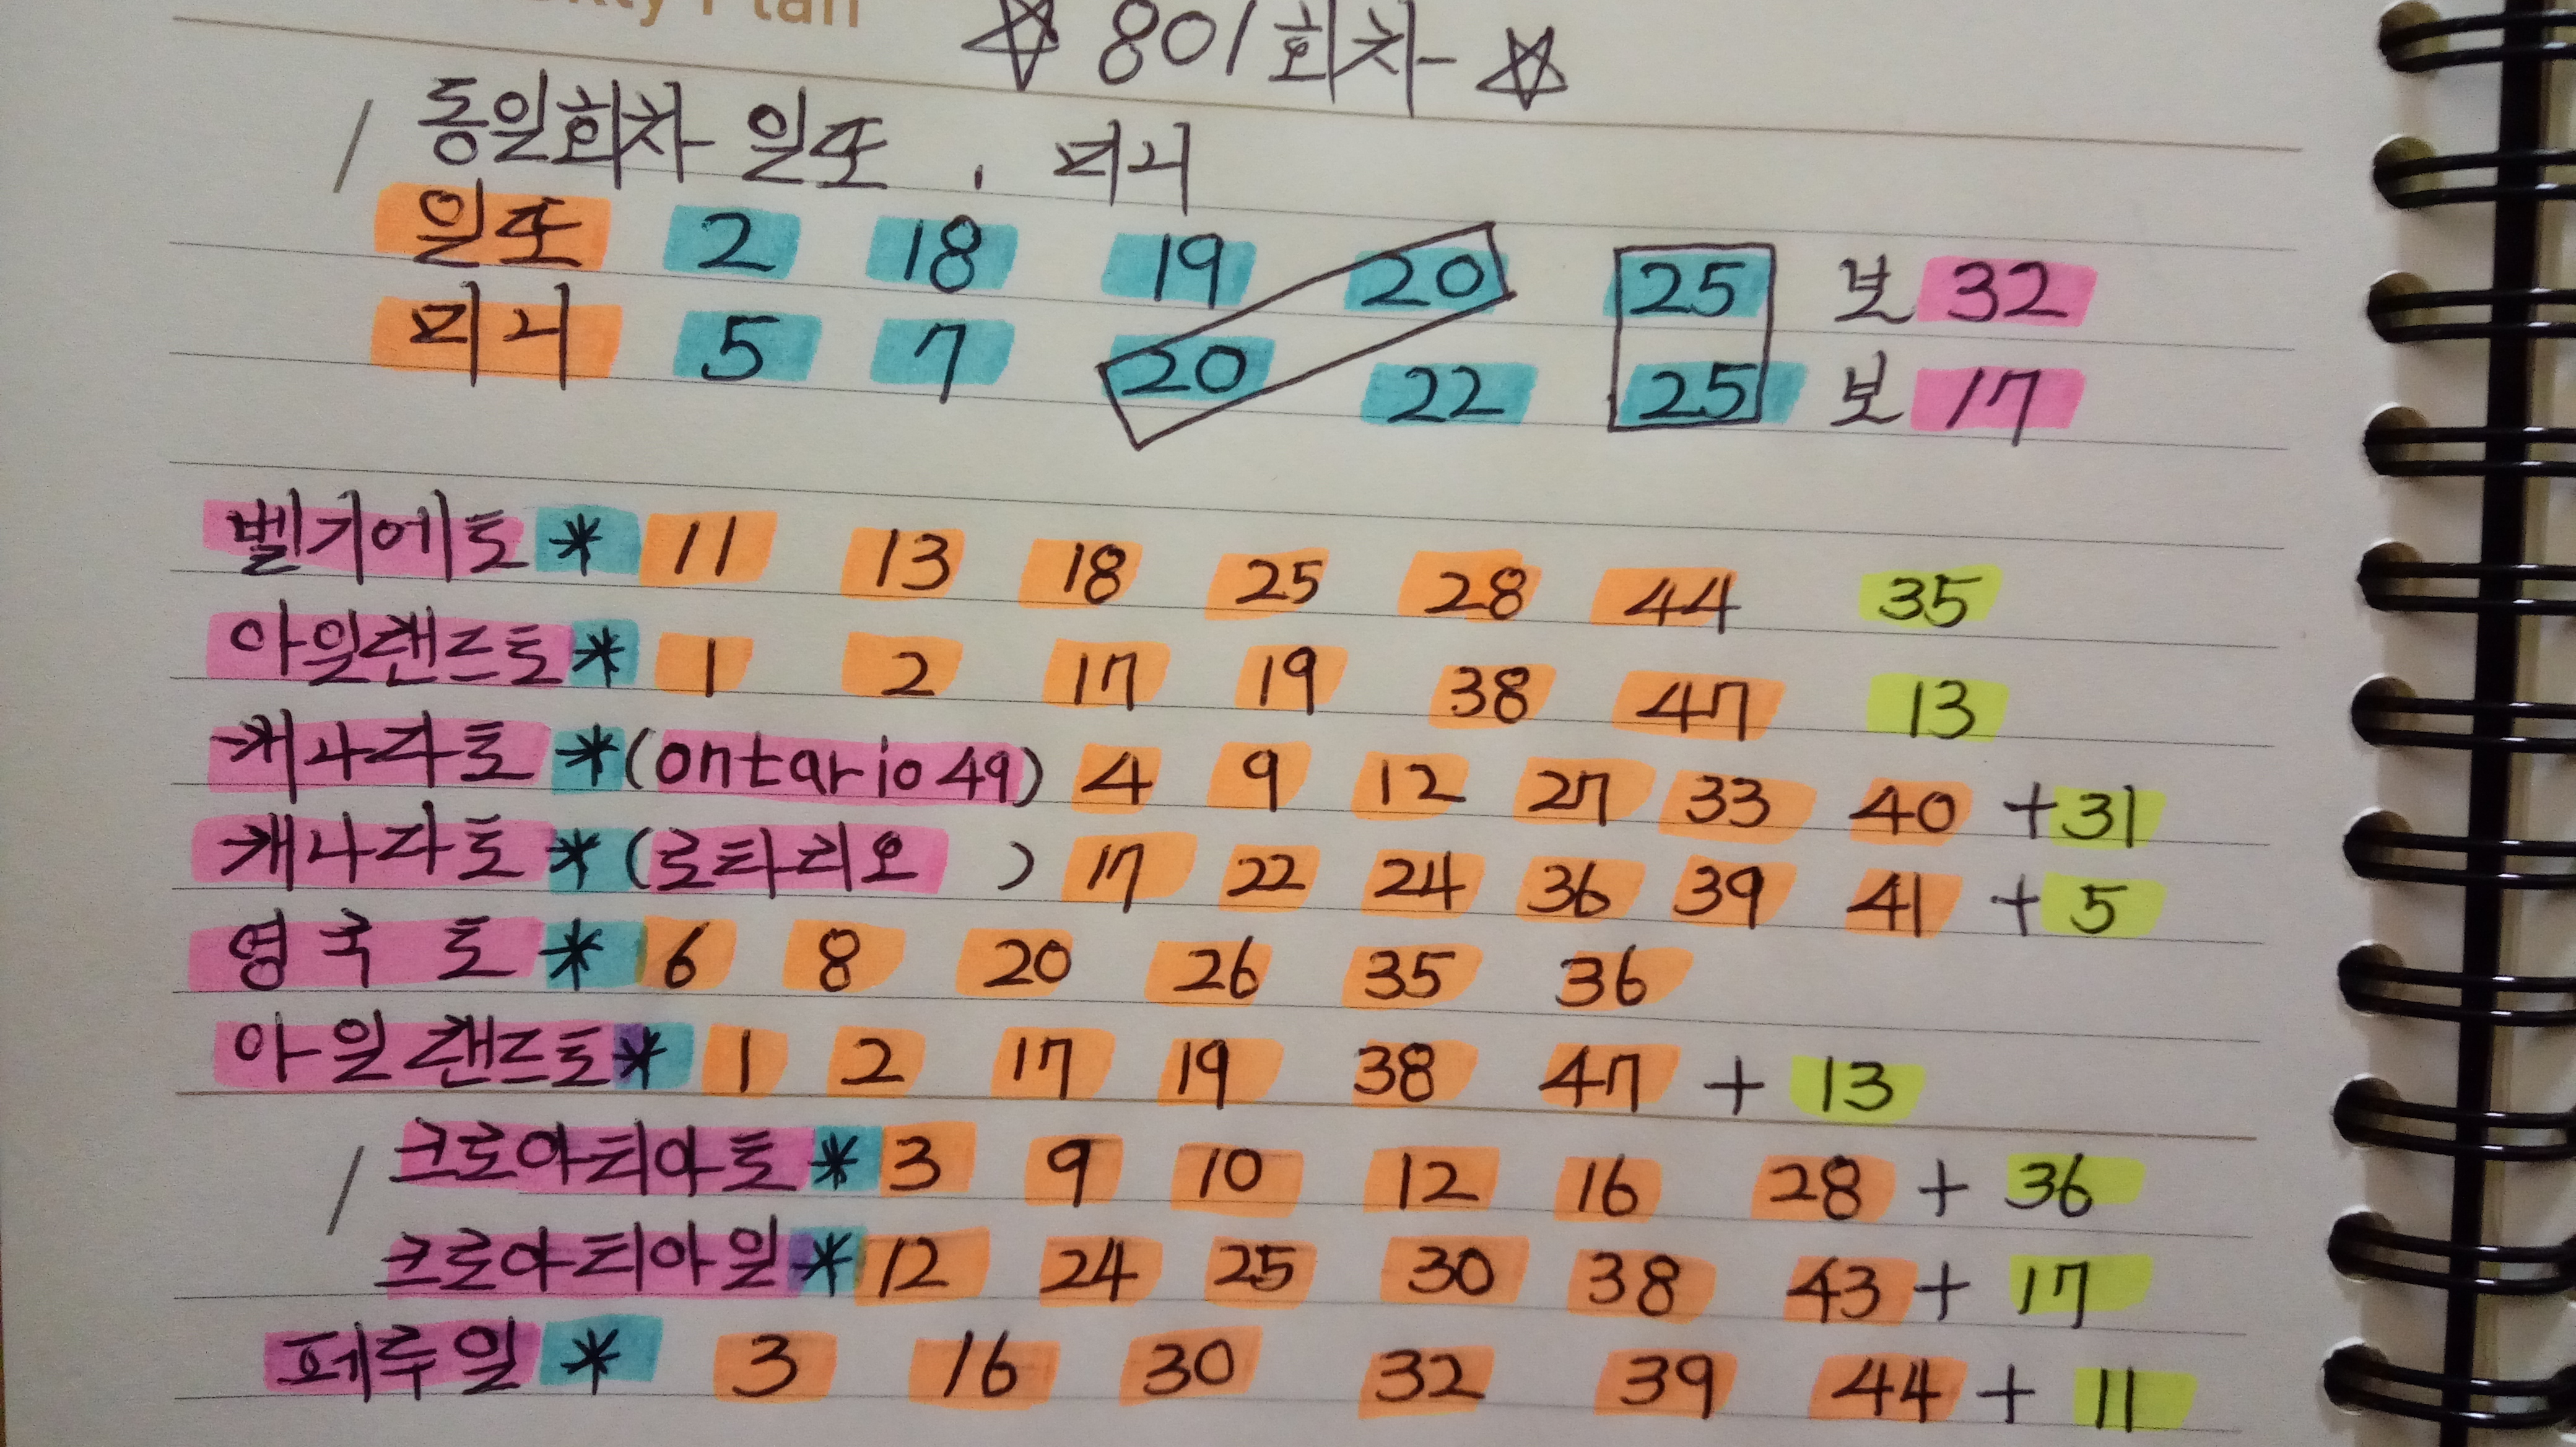 Plan
☆ 801회차 ☆
동일회차 일또, 미니
일또 2 18 19 20 25 보 32
미니 5 7 20 22 25 보 17
벨기에토 * 11 13 18 25 28 44 35
아일랜드토 * 1 2 17 19 38 47 13
캐나다토 * (ontario 49) 4 9 12 27 33 40 + 31
캐나다토 * (로타리오 ) 17 22 24 36 39 41 + 5
영국토 * 6 8 20 26 35 36
아일랜드토 * 1 2 17 19 38 47 + 13
크로아티아토 * 3 9 10 12 16 28 + 36
크로아티아일 * 12 24 25 30 38 43 + 17
페루일 * 3 16 30 32 39 44 + 11